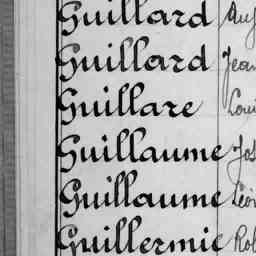 Guillard Aug
Guillard Jean
Guillare Loui
Guillaume Jos
Guillaume Léon
Guillermic Rol